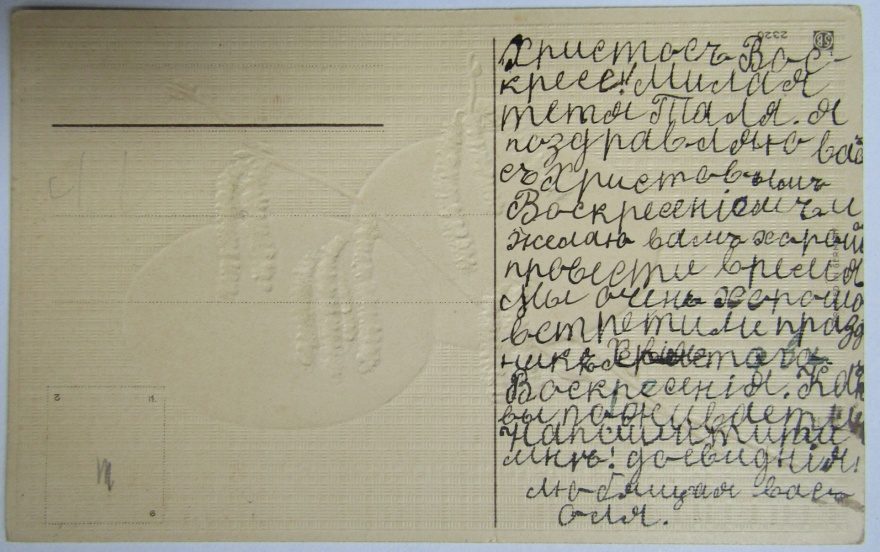 Христосъ Вос-
кресе! Милая
тетя Таля. я
поздравляю васъ
съ Христовымъ
Воскресеніемъ и
желаю вамъ харош
провести время
мы очень хорошо
встретили празд
никъ Христова
Воскресенія. Как
вы поживаете
мнѣ! досвиднія
любящая васъ
Оля.
2320